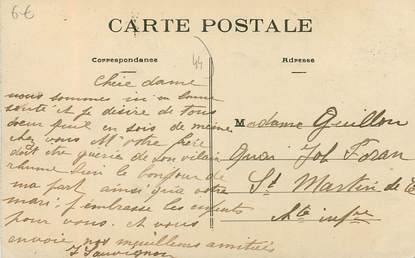 6€
CARTE POSTALE
Correspondance
Adresse
44
Chère dame
nous sommes ici en bonne
santé et je désire de tous
cœur quil en sois de meime
chez vous Mr votre frère
doit être guerie de son vilain
rhume bon le bonjour de
ma part ainsi qua votre
mari. j'embrasse les enfants
pour vous. et vous
envoie nos meuilleurs amitiés
J Sauvignon
Madame Guillon
Quai Job Foran
St Martin de
Cte infre